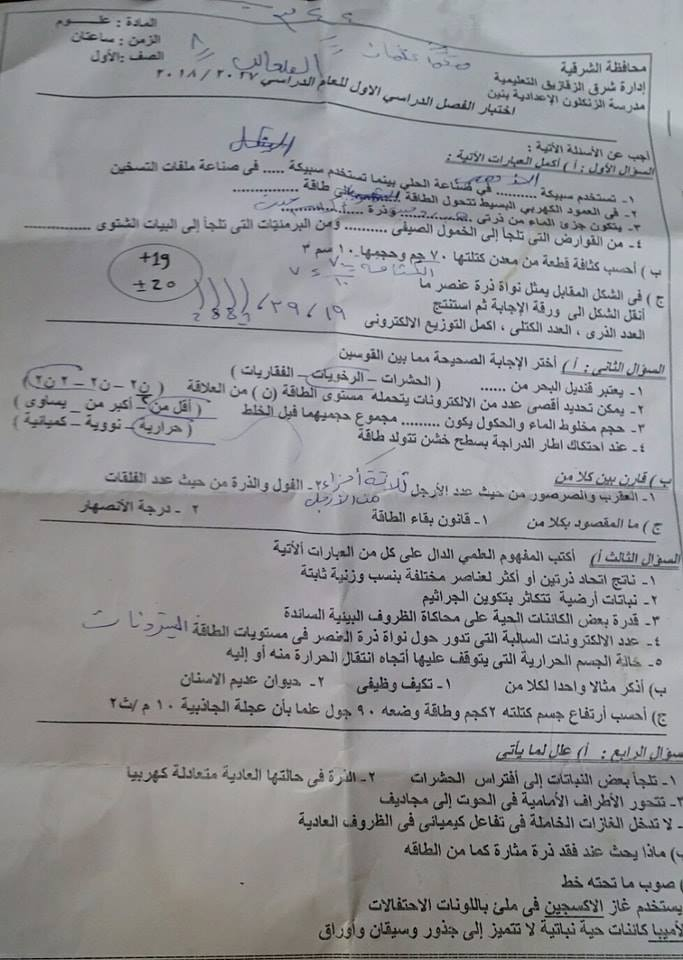 محافظة الشرقية
إدارة شرق الزقازيق التعليمية
مدرسة الزنكلون الإعدادية بنين
المادة : علـــوم
الزمن : ساعتان
الصف : الأول
اختبار الفصل الدراسي الاول للعام الدراسي ٢٠١٧ / ٢٠١٨
أجب عن الأسئلة الأتية :
السؤال الأول : أ ) أكمل العبارات الأتية :
١- تستخدم سبيكة ......... في صناعة الحلي بينما تستخدم سبيكة ..... فى صناعة ملفات التسخين
٢- فى العمود الكهربي البسيط تتحول الطاقة طاقة ............
٣- يتكون جزئ الماء من ذرتى وذرة
٤- من القوارض التى تلجأ إلى الخمول الصيفى .......... ومن البرمئيات التى تلجأ إلى البيات الشتوى ............
ب ) أحسب كثافة قطعة من معدن كتلتها ٧٠ جم وحجمها ١٠ سم ٣
الكثافة = ٧٠ / ١٠ = ٧
ج ) فى الشكل المقابل يمثل نواة ذرة عنصر ما
أنقل الشكل الى ورقة الإجابة ثم استنتج
العدد الذرى ، العدد الكتلى ، اكمل التوزيع الالكترونى
+19
± 20
2 8 8 1
١٩ ، ٣٩
السؤال الثانى : أ ) أختر الإجابة الصحيحة مما بين القوسين
١- يعتبر قنديل البحر من ...... ( الحشرات – الرخويات – الفقاريات )
٢- يمكن تحديد أقصى عدد من الالكترونات يتحمله مستوى الطاقة (ن ) من العلاقة ( ن٢ – ن٢ – ٢ ن٢ )
٣- حجم مخلوط الماء والحكول يكون ......... مجموع حجميهما قبل الخلط ( أقل من – أكبر من _ يساوى )
٤- عند احتكاك اطار الدراجة بسطح خشن تتولد طاقة ( حرارية – نووية – كميائية )
ب ) قارن بين كلا من
١- العقرب والصرصور من حيث عدد الأرجل ٢- الفول والذرة من حيث عدد الفلقات
ثلاثة أجزاء
من الأرجل
ج ) ما المقصود بكلا من ١- قانون بقاء الطاقة ٢ - درجة الأنصهار
السؤال الثالث أ ) أكتب المفهوم العلمي الدال على كل من العبارات ألأتية
١- ناتج اتحاد ذرتين أو أكثر لعناصر مختلفة بنسب وزنية ثابتة
٢- نباتات أرضية تتكاثر بتكوين الجراثيم
٣- قدرة بعض الكائنات الحية على محاكاة الظروف البيئية السائدة
٤- عدد الالكترونات السالبة التى تدور حول نواة ذرة العنصر فى مستويات الطاقة
٥- حالة الجسم الحرارية التى يتوقف عليها أتجاه انتقال الحرارة منه أو إليه
ب) أذكر مثالا واحدا لكلا من ١- تكيف وظيفى ٢- حيوان عديم الاسنان
ج) أحسب أرتفاع جسم كتلته ٢كجم وطاقة وضعه ٩٠ جول علما بأن عجلة الجاذبية ١٠ م /ث٢
سؤال الرابع : أ ) علل لما يأتى
١- تلجأ بعض النباتات إلى أفتراس الحشرات ٢- الذرة فى حالتها العادية متعادلة كهربيا
٣- تتحور الأطراف الأمامية فى الحوت إلى مجاديف
- لا تدخل الغازات الخاملة فى تفاعل كيميائى فى الظروف العادية
ب) ماذا يحث عند فقد ذرة مثارة كما من الطاقه
) صوب ما تحته خط
يستخدم غاز الاكسجين فى ملئ باللونات الاحتفالات
لأميبا كائنات حية نباتية لا تتميز إلى جذور وسيقان وأوراق